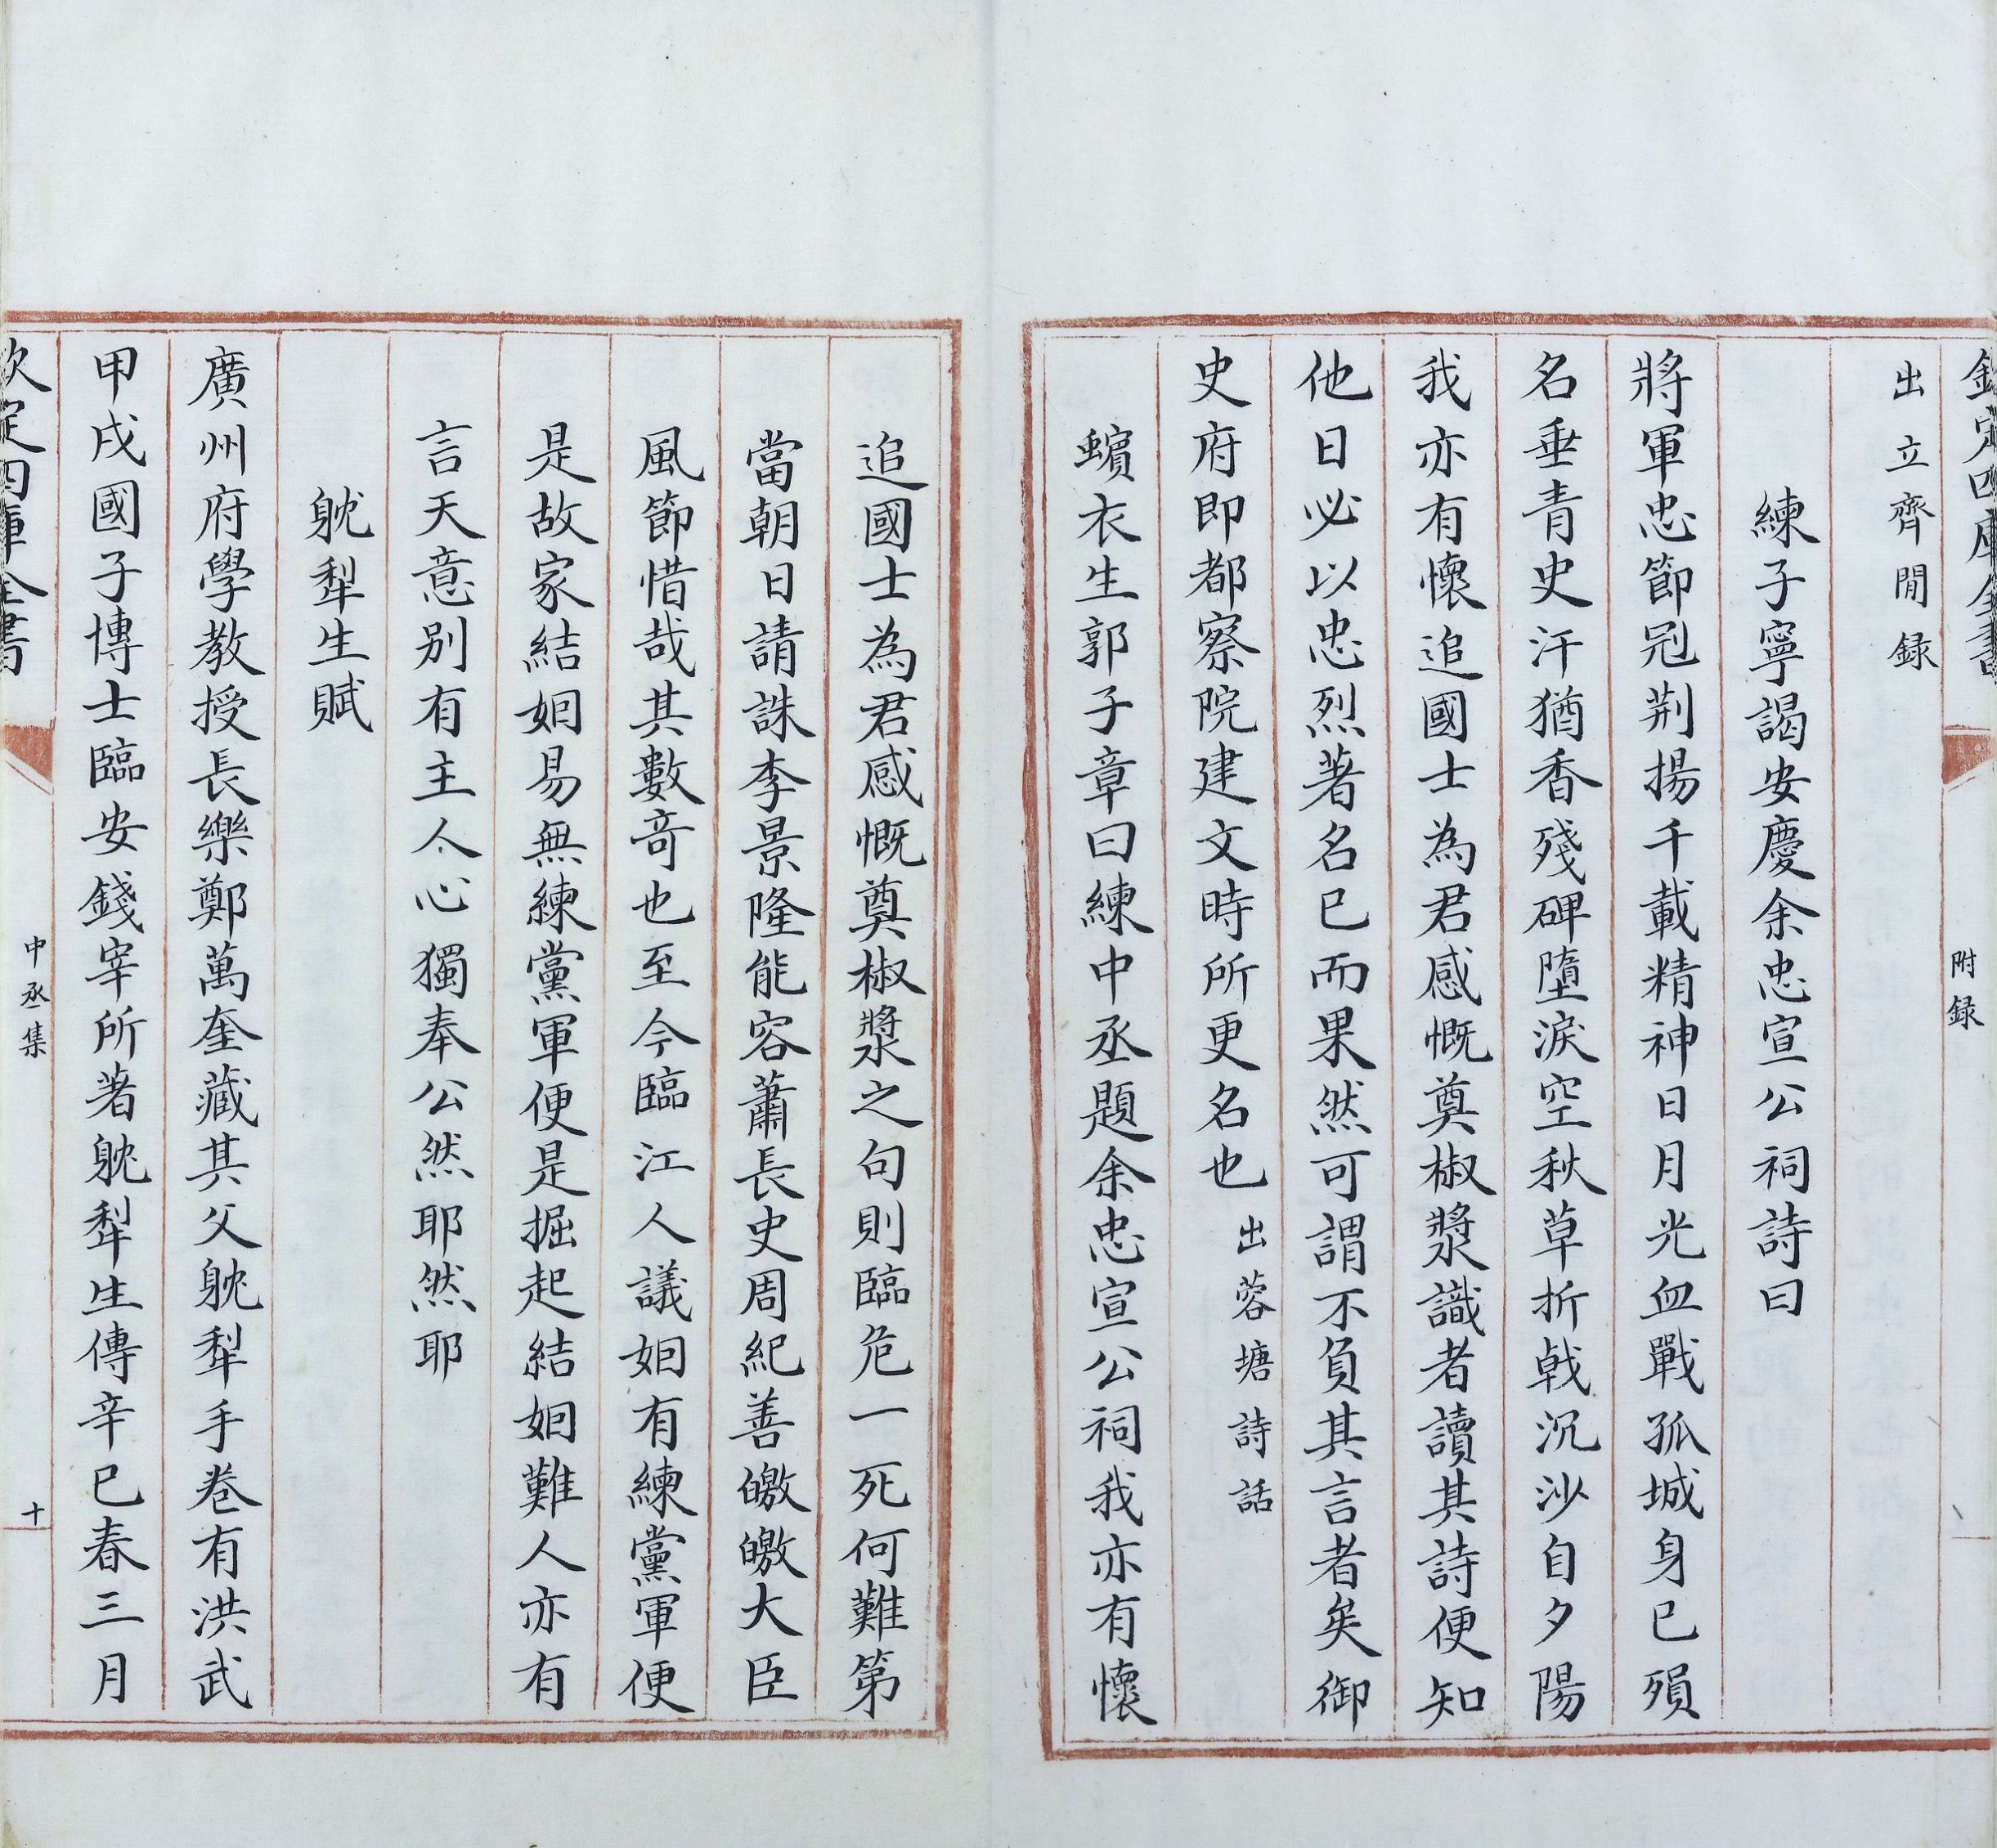 欽定四庫全書
附録
出立齊閒録
練子寧謁安慶余忠宣公祠詩曰
將軍忠節冠荆揚千載精神日月光血戰孤城身已殞
名垂青史汗猶香殘碑墮淚空秋草折戟沉沙自夕陽
我亦有懷追國士為君感慨奠椒漿識者讀其詩便知
他日必以忠烈著名已而果然可謂不負其言者矣御
史府即都察院建文時所更名也出蓉塘詩話
蠙衣生郭子章曰練中丞題余忠宣公祠我亦有懷
追國士為君感慨奠椒漿之句則臨危一死何難第
當朝日請誅李景隆能容蕭長史周紀善皦皦大臣
風節惜哉其數竒也至今臨江人議姻有練黨軍便
是故家結姻易無練黨軍便是掘起結姻難人亦有
言天意别有主人心獨奉公然耶然耶
躭犂生賦
廣州府學教授長樂鄭萬奎藏其父躭犂手卷有洪武
甲戌國子博士臨安錢宰所著躭犂生傳辛巳春三月
欽定四庫全書
中丞集
十